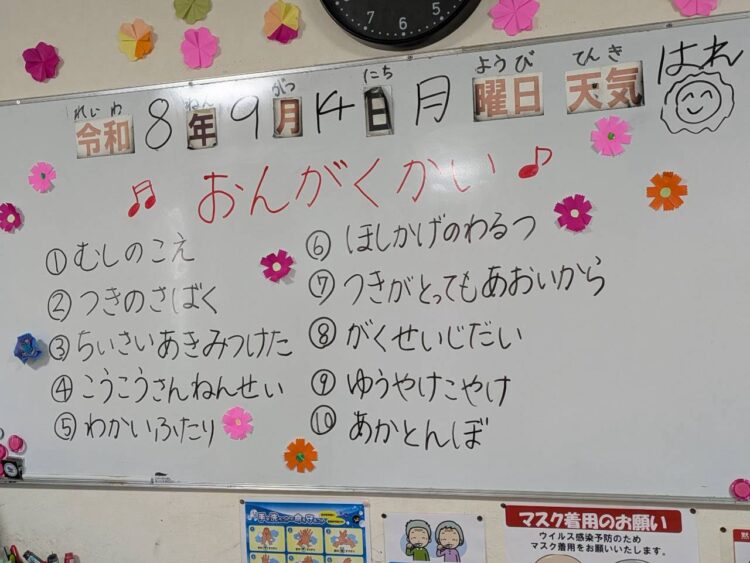 7 6 5
れいわ ねん がつ にち ようび てんき
令和 8 年 9 月 14 日 月 曜日 天気 はれ
おんがくかい
① むしのこえ
② つきのさばく
③ ちいさいあきみつけた
④ こうこうさんねんせい
⑤ わかいふたり
⑥ ほしかげのわるつ
⑦ つきがとってもあおいから
⑧ がくせいじだい
⑨ ゆうやけこやけ
⑩ あかとんぼ
マスク着用のお願い
ウイルス感染予防のため
マスク着用をお願いいたします。